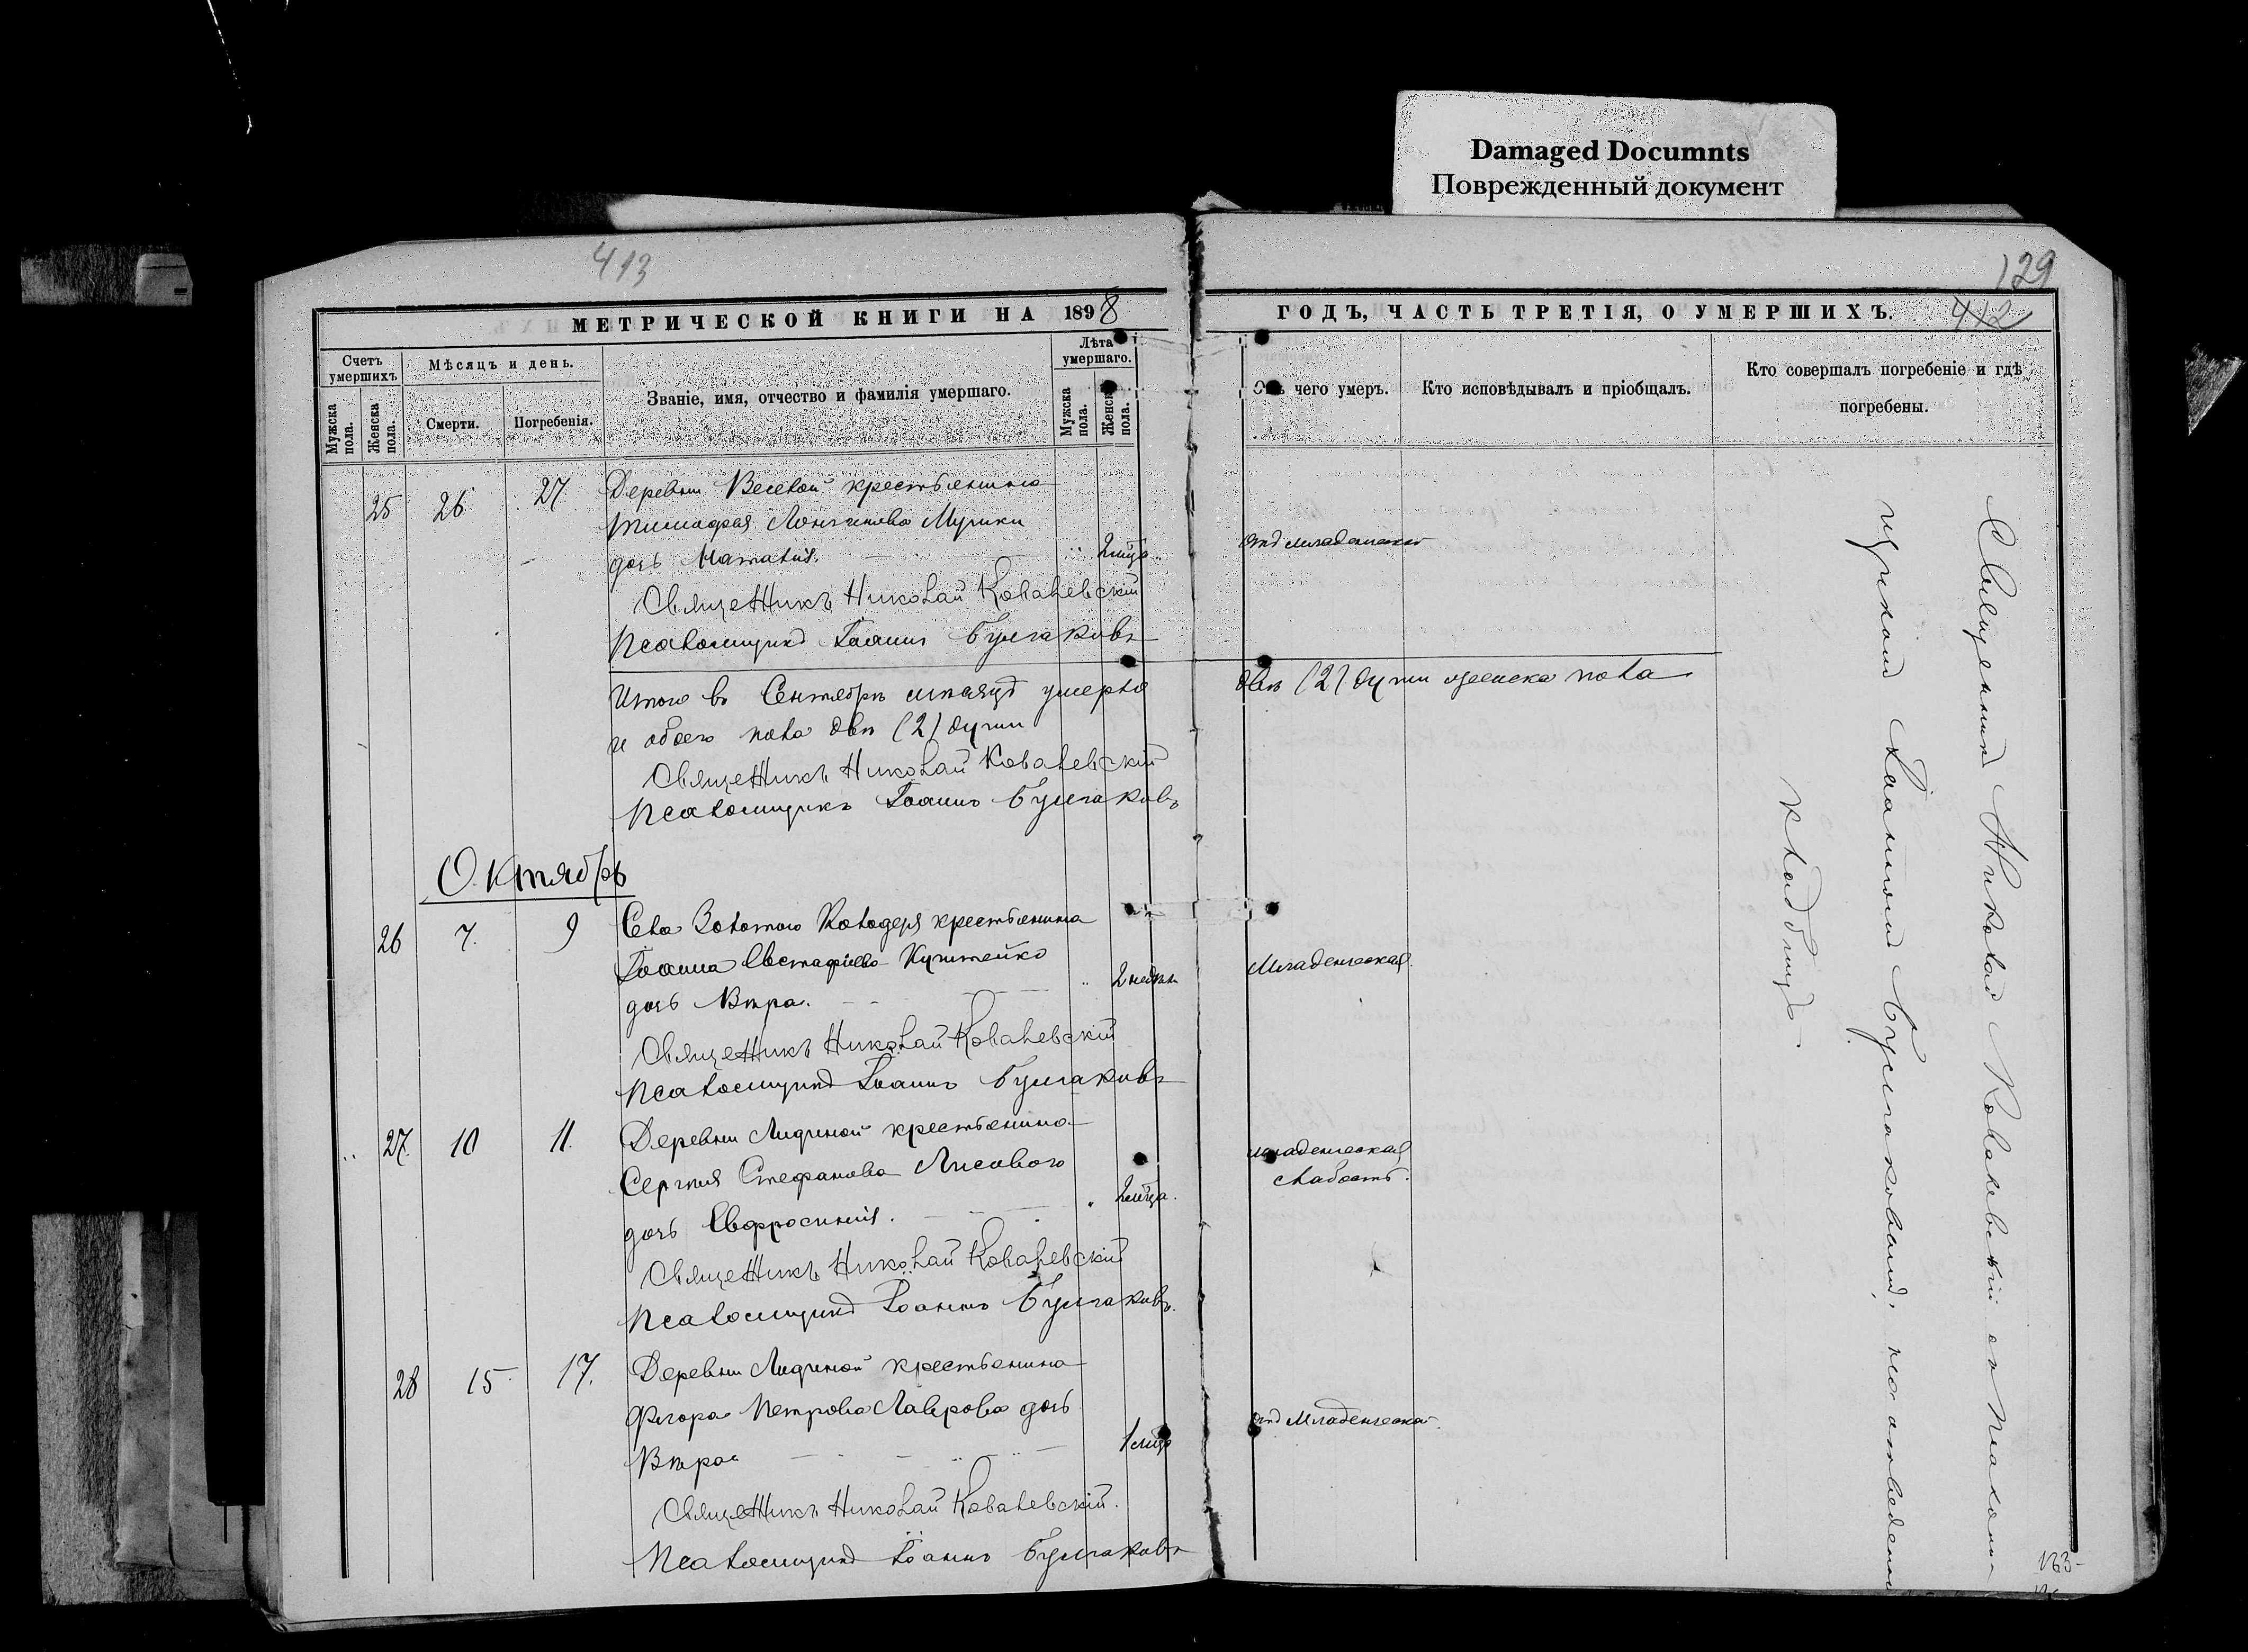 Damaged Documnts
Поврежденный документ
413
129
412
МЕТРИЧЕСКОЙ КНИГИ НА 1898
ГОДЪ, ЧАСТЬ ТРЕТІЯ, О УМЕРШИХЪ.
Счетъ умершихъ
Мужска пола.
Женска пола.
Мѣсяцъ и день.
Смерти.
Погребенія.
Званіе, имя, отчество и фамилія умершаго.
Лѣта умершаго.
Мужска пола.
Женска пола.
чего умеръ.
Кто исповѣдывалъ и пріобщалъ.
Кто совершалъ погребеніе и гдѣ
погребены.
25 26 27. Деревни Веселой крестьянина
Тимофея Лонгинова
дочь Наталія. 2 м-ца
отъ младенческой
Священникъ Николай Ковалевскій
Псаломщикъ Іоаннъ Булгаковъ
Итого въ Сентябрѣ мѣсяцѣ умерло
двѣ (2) души женска пола
и обоего пола двѣ (2) души
Священникъ Николай Ковалевскій
Псаломщикъ Іоаннъ Булгаковъ
Октябрь
26 7. 9 Села Золотого Колодезя крестьянина
Іоанна Евстафіева
дочь Вѣра. 2 недѣли
Младенческая
Священникъ Николай Ковалевскій
Псаломщикъ Іоаннъ Булгаковъ
27. 10 11. Деревни Лидиной крестьянина
Сергѣя Стефанова Лисового
дочь Евфросинія. 2 м-ца.
младенческая
слабость.
Священникъ Николай Ковалевскій
Псаломщикъ Іоаннъ Булгаковъ.
28 15 17. Деревни Лидиной крестьянина
Флора Петрова Лаврова дочь
Вѣра 1 м-ць
отъ Младенческой
Священникъ Николай Ковалевскій.
Псаломщикъ Іоаннъ Булгаковъ
Священникъ Николай Ковалевскій съ Псалом-
щикомъ Іоанномъ Булгаковымъ, на отведенном
кладбищѣ.